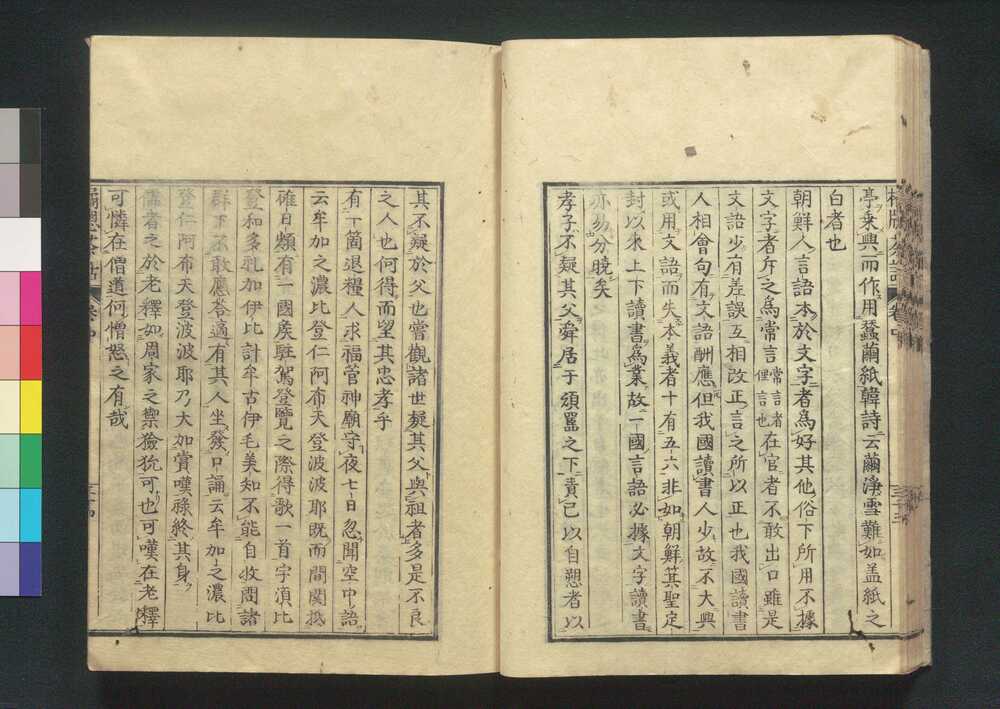 亭乘興而作用蠶繭紙韓詩云繭淨雪難如盖紙之
白者也
朝鮮人言語本於文字者爲好其他俗下所用不據
文字者斥之爲常言常言者俚言也在官者不敢出口雖是
文語少有差誤互相改正言之所以正也我國讀書
人相會句有文語酬應但我國讀書人少故不大興
或用文語而失本義者十有五六非如朝鮮箕聖定
封以來上下讀書爲業故一國言語必據文字讀書
亦易分曉矣
孝子不疑其父舜居于頑嚚之下責己以自愬者以
其不疑於父也嘗觀諸世疑其父與祖者多是不良
之人也何得而望其忠孝乎
有一箇退糧人求福菅神廟守夜七日忽聞空中語
云牟加之濃比登仁阿布天登波波耶既而間関抵
確日頗有一國矦駐駕登覽之際得歌一首字湏比
登和多礼加伊比計牟古伊毛美知不能自收問諸
群下不敢應答適有其人坐發口誦云牟加之濃比
登仁阿布天登波波耶乃大加賞嘆祿終其身
儒者之於老釋如周家之禦獫狁可也可嘆在老釋
可憐在僧道何憎怒之有哉